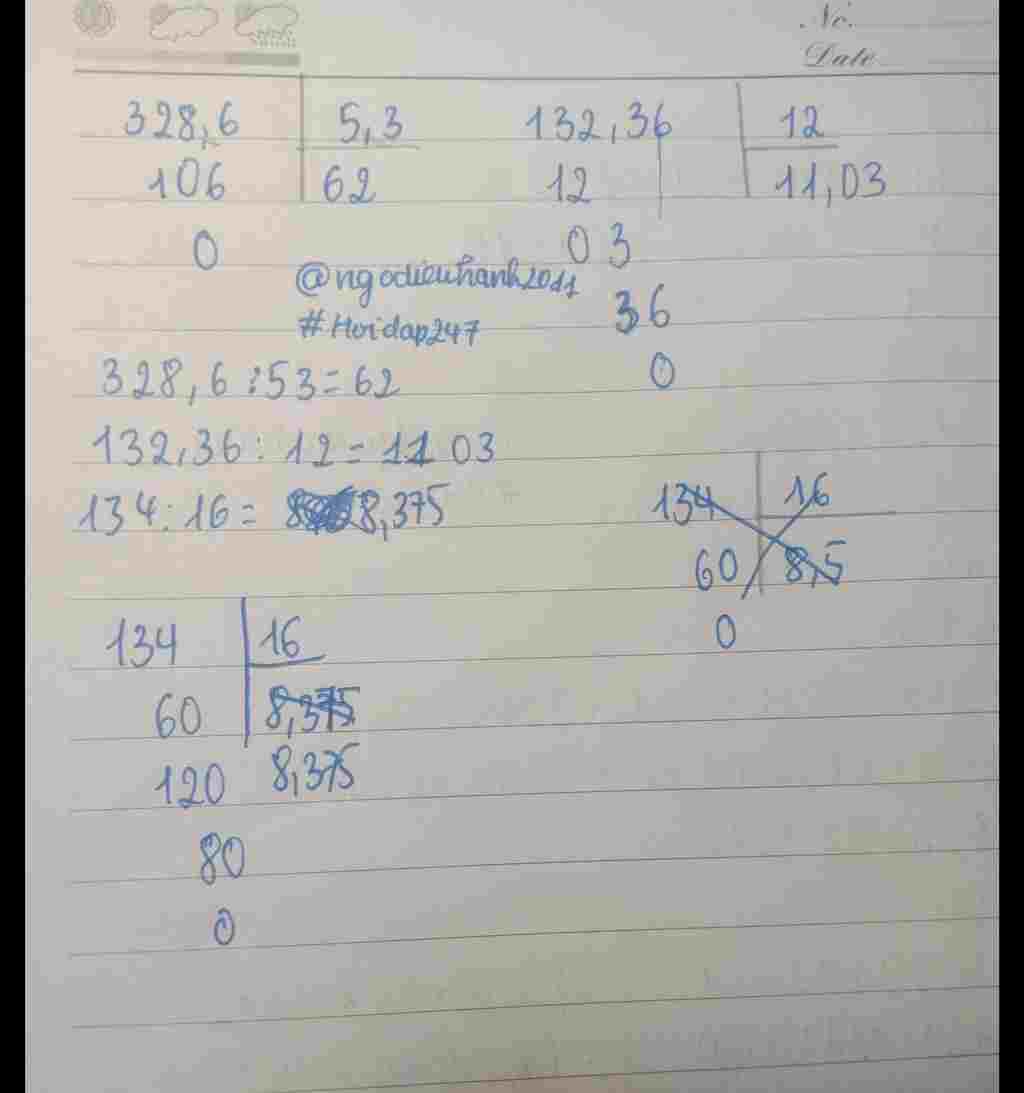 No.
Date
328,6 5,3 132,36 12
106 62 12 11,03
0 03
@ngodieuhanh2011
36
#Hoidap247
0
328,6 : 53 = 62
132,36 : 12 = 11 03
134 : 16 = 8,375
134 16
60 8,5
0
134 16
60 8,375
120 8,375
80
0